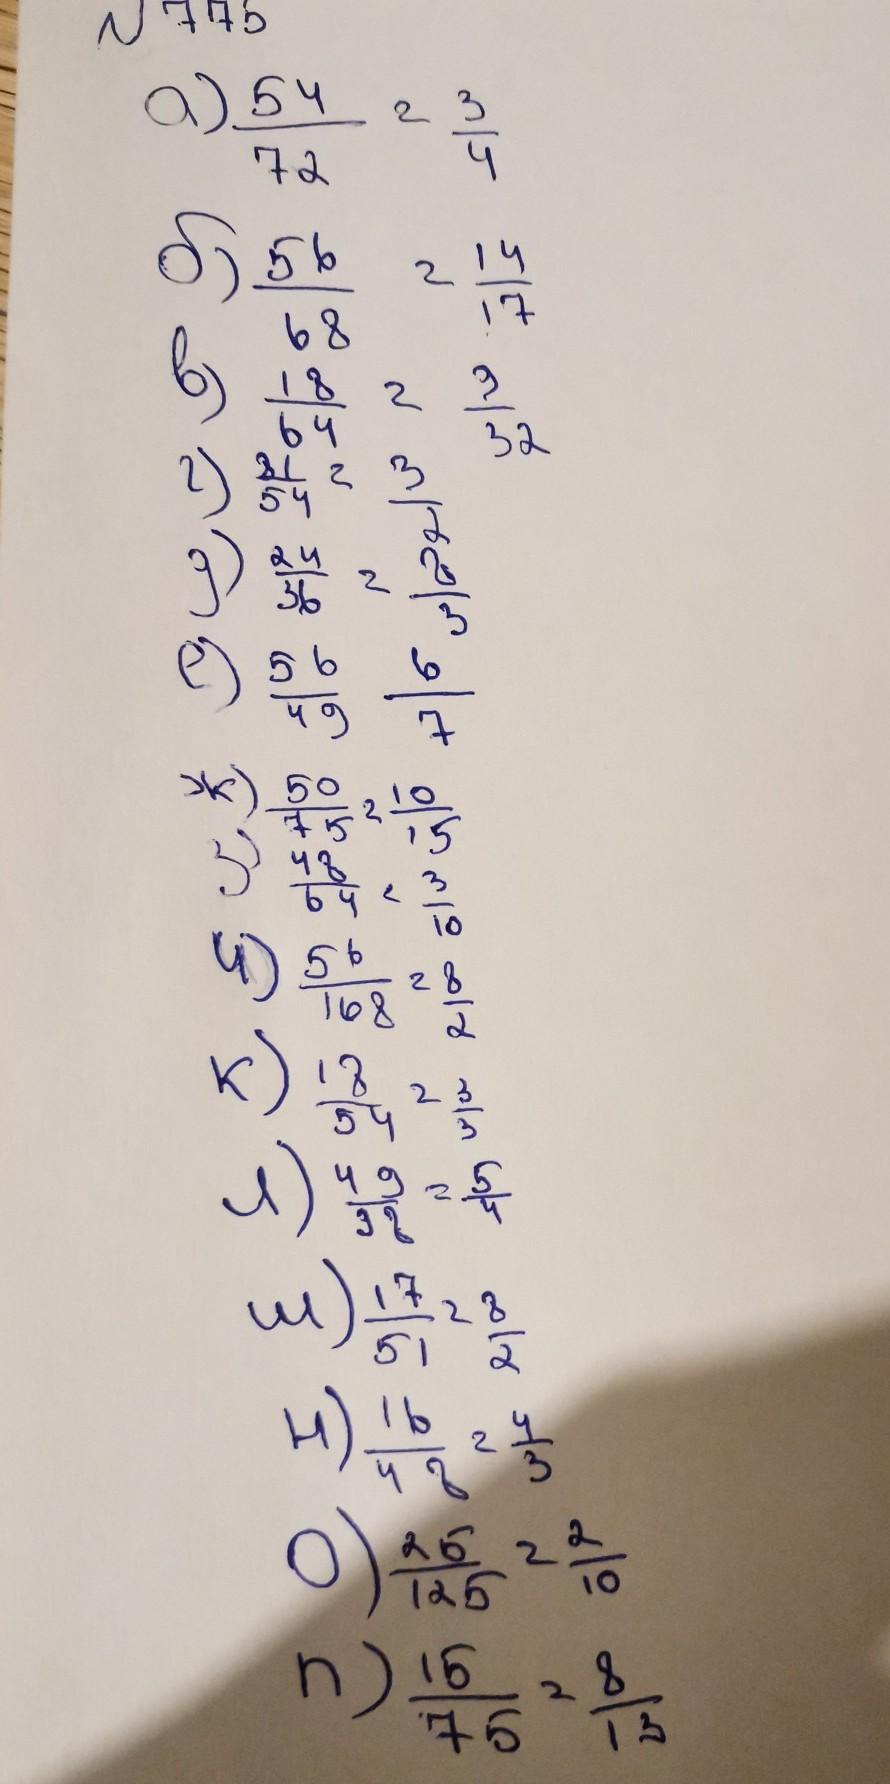 N 775
а) 54/72 = 3/4
б) 56/68 = 14/17
в) 18/64 = 9/32
г) /54 = 3/2
д) 24/36 = 2/3
е) 56/49 6/7
ж) 50/75 = 10/15
з) 48/64 = 3/10
и) 56/168 = 8/2
к) 18/54 = 3/3
л) 49/98 = 5/4
м) 17/51 = 8/2
н) 16/48 = 4/3
о) 25/125 = 2/10
п) 15/75 = 8/13